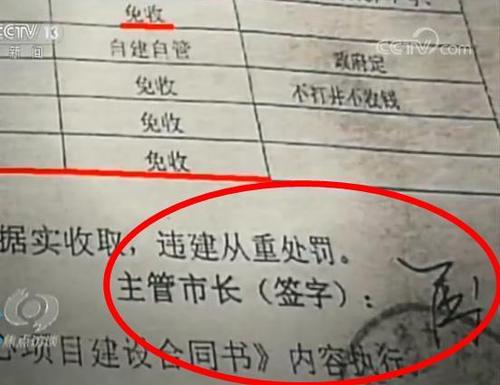 CCTV 13
新闻
cctv.com
免收
自建自管
政府定
免收
不打井不收钱
免收
免收
据实收取，违建从重处罚。
主管市长（签字）：
心项目建设合同书》内容执行
焦点访谈